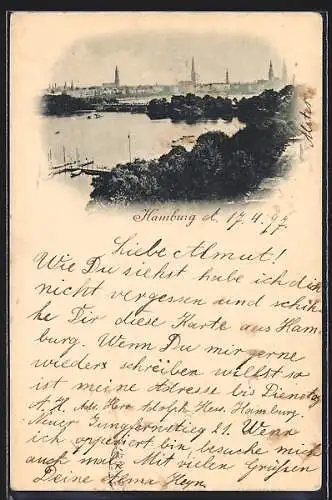 Alster
Hamburg d. 17.4.97
Liebe Almut!
Wie Du siehst habe ich dich
nicht vergessen und schik-
ke Dir diese Karte aus Ham-
burg. Wenn Du mir gerne
wieder schreiben willst so
ist meine Adresse bis Dienstag
Adr. Herr Adolph Hess. Hamburg.
Neuer Jungfernstieg 21. Wenn
ich bin besuche mich
auch mal. Mit vielen Grüßen
Deine Alma Heyn.